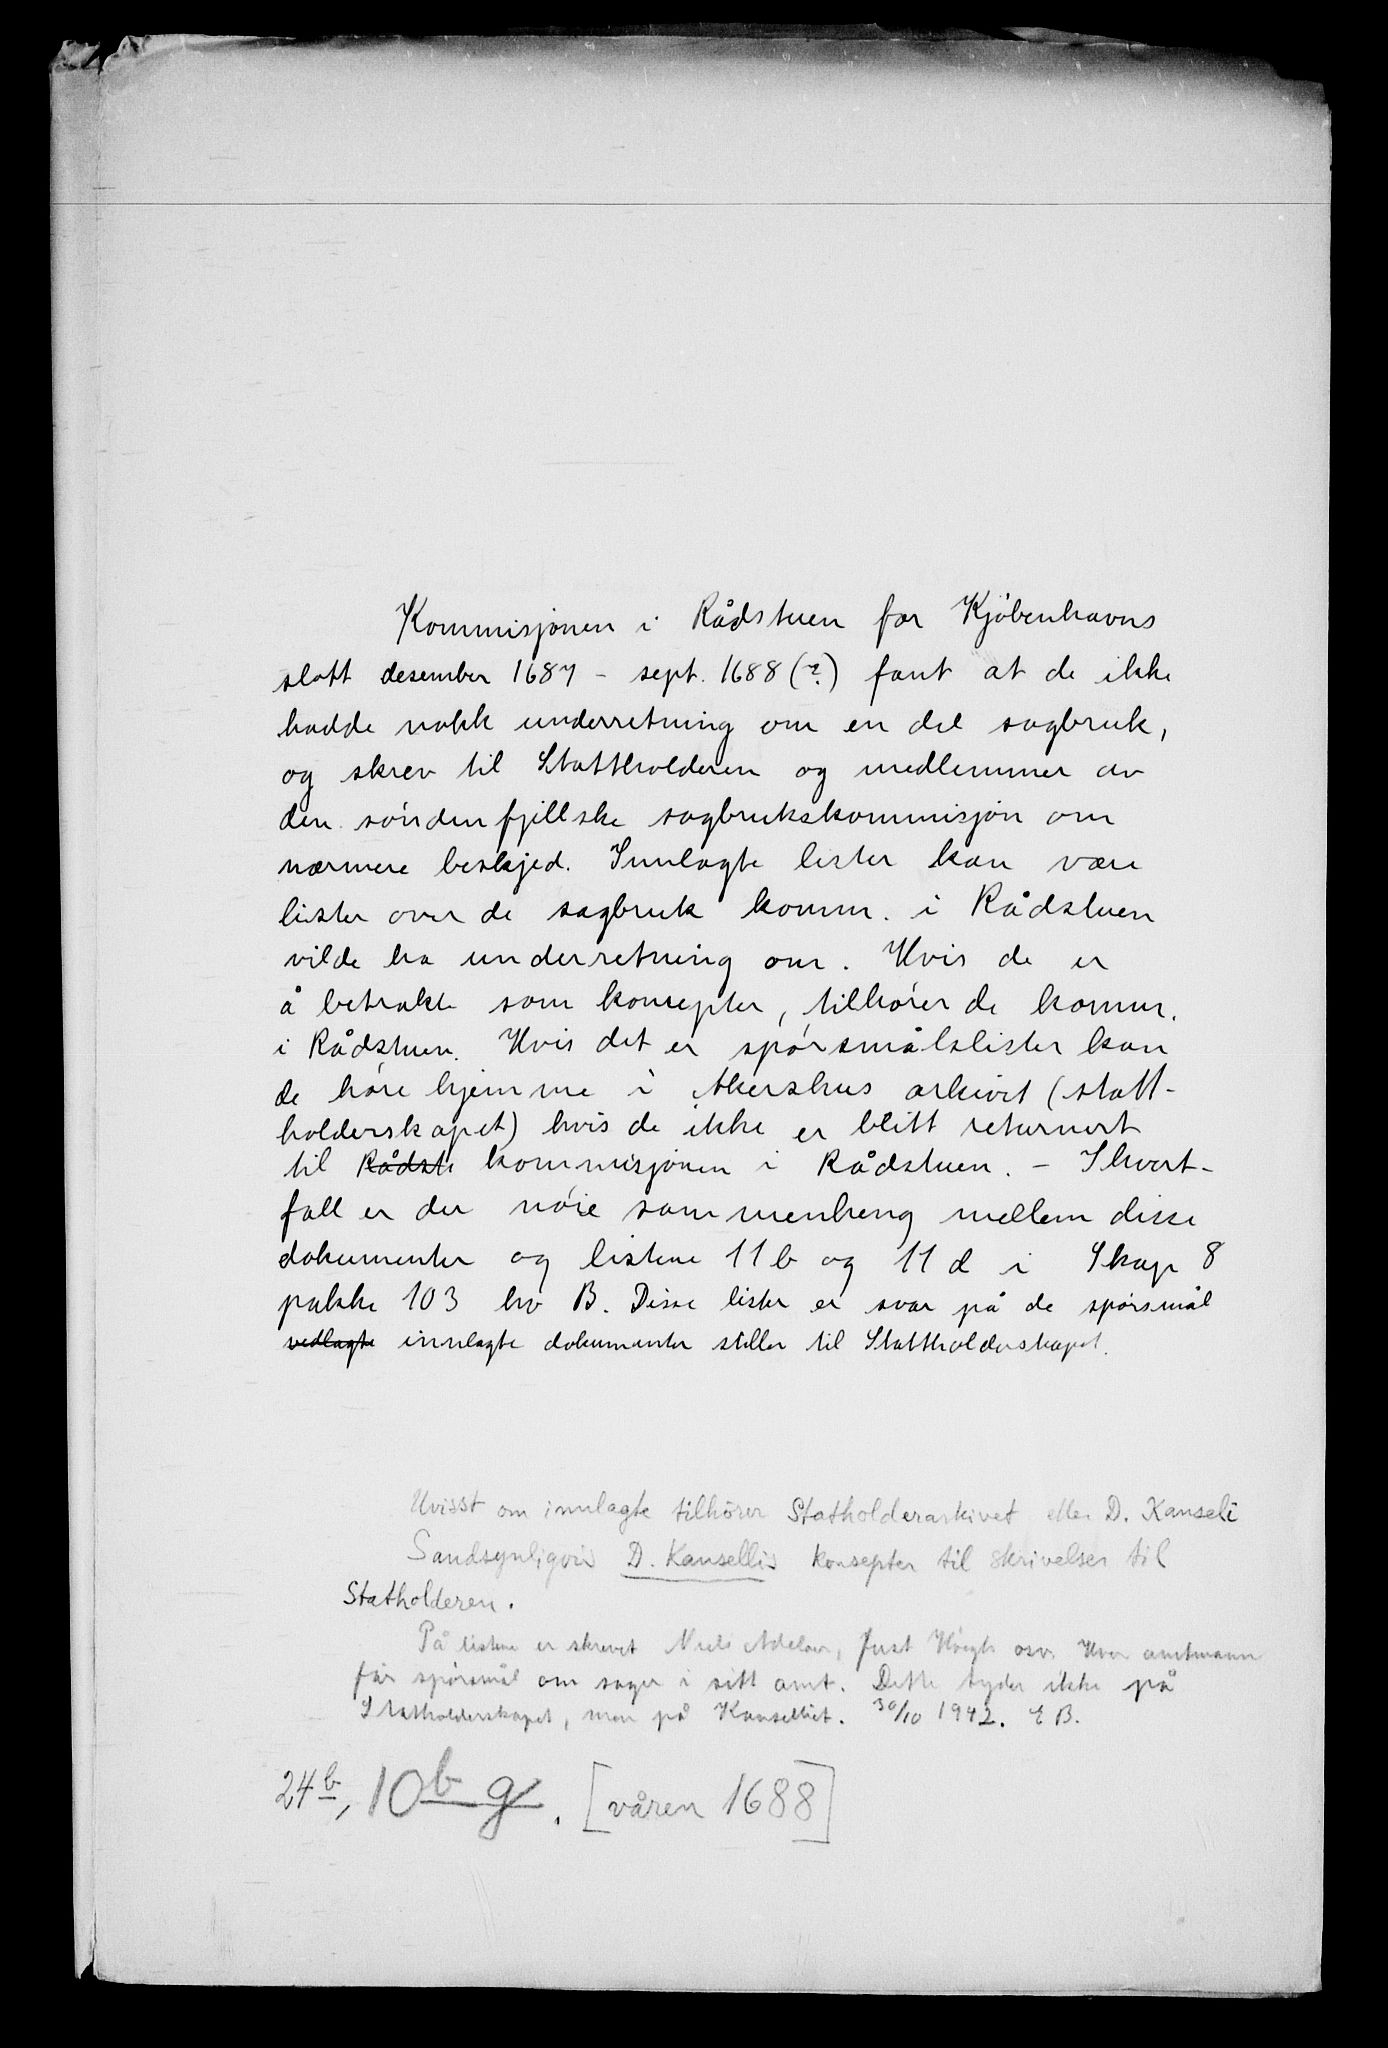 Kommisjonen i Rådstuen for Kjøbenhavns
slott desember 1687 - sept. 1688 (?) fant at de ikke
hadde nokk underretning om en del sagbruk,
og skrev til Stattholderen og medlemmer av
den søndenfjellske sagbrukskommisjon om
nærmere beskjed. Innlagte lister kan være
lister over de sagbruk komm. i Rådstuen
vilde ha underretning om. Hvis de er
å betrakte som konsepter, tilhører de komm.
i Rådstuen. Hvis det er spørsmålslister kan
de høre hjemme i Akershus arkivet (statt-
holderskapet) hvis de ikke er blitt returnert
til Rådst kommisjonen i Rådstuen. - I hvert-
fall er der nøie sammenheng mellem disse
dokumenter og listene 11 b og 11 d i Skap 8
pakke 103 lv B. Disse lister er svar på de spørsmål
vedlagte innlagte dokumenter stiller til Stattholderskapet.
Uvisst om innlagte tilhører Statholderarkivet eller D. Kanseli
Sandsynligvis D. Kansellis konsepter til skrivelser til
Statholderen.
På listene er skrevet Niels Adelaer, Just Høegh osv. Hver amtmann
får spørsmål om sager i sitt amt. Dette tyder ikke på
Statholderskapet, men på Kanselliet. 30/10 1942. E B.
24 b, 10 b g. [våren 1688]